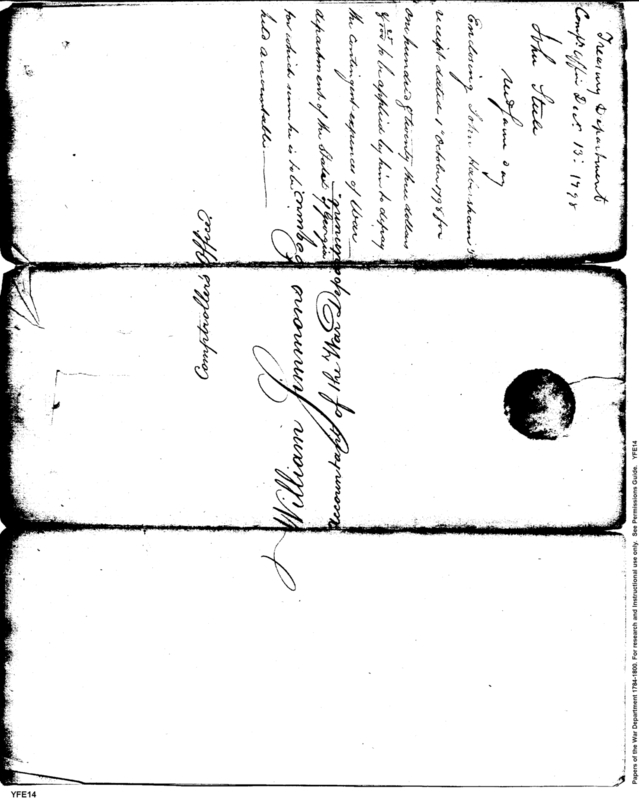 Treasury Department
Comps Office Dec. 13: 1798
John Steele
recd same day
Enclosing John Habersham's
receipt dated 1st October 1798 for
one hundred & twenty three dollars
to be applied by him to defray
the contingent expences of War
department of the State of Georgia
for which sum he is to be
held accountable
William Simmons Esquire
Accountant of the War Department
Comptrollers Office
Papers of the War Department 1784-1800. For research and instructional use only. See Permissions Guide. YFE14
YFE14